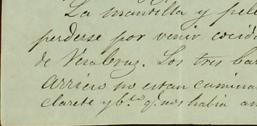 La mantilla y pele
perderse por venir cocid
de Veracruz. Los tres ba
arriero no estan camina
clarete y b.co q. nos habia an